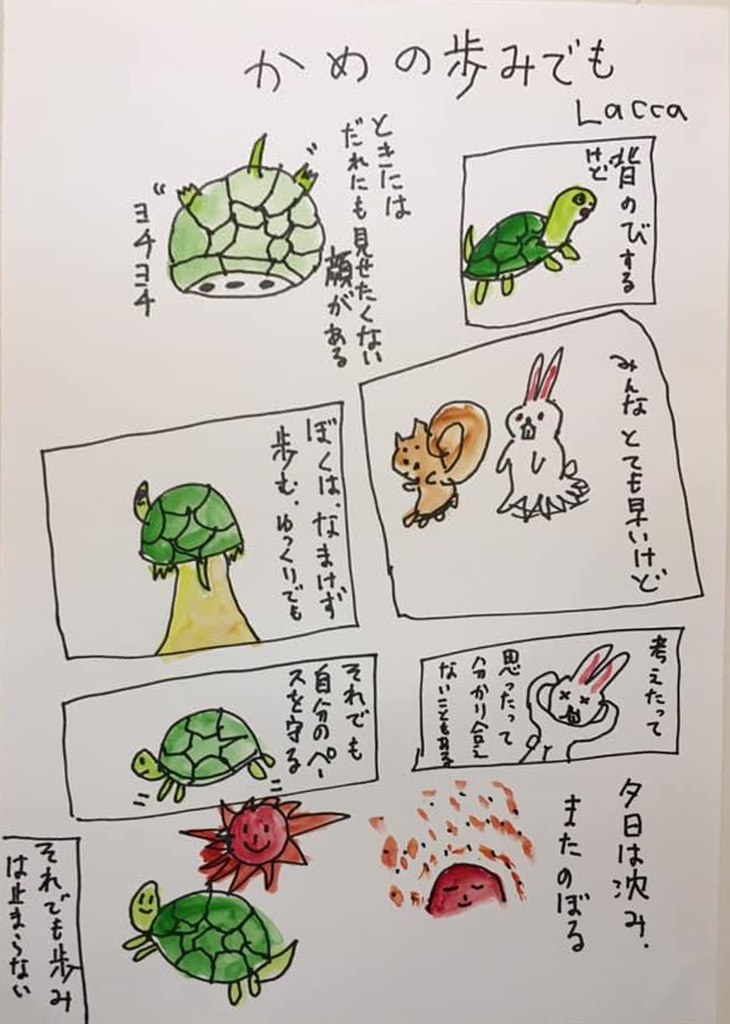 かめの歩みでも
Lacca
背のびする
けど
ときには
だれにも見せたくない
顔がある
ヨチヨチ
みんなとても早いけど
ぼくは、なまけず
歩む、ゆっくりでも
考えたって
思ったって
分かり合え
ないこともある
それでも
自分のペー
スを守る
夕日は沈み、
またのぼる
それでも歩み
は止まらない